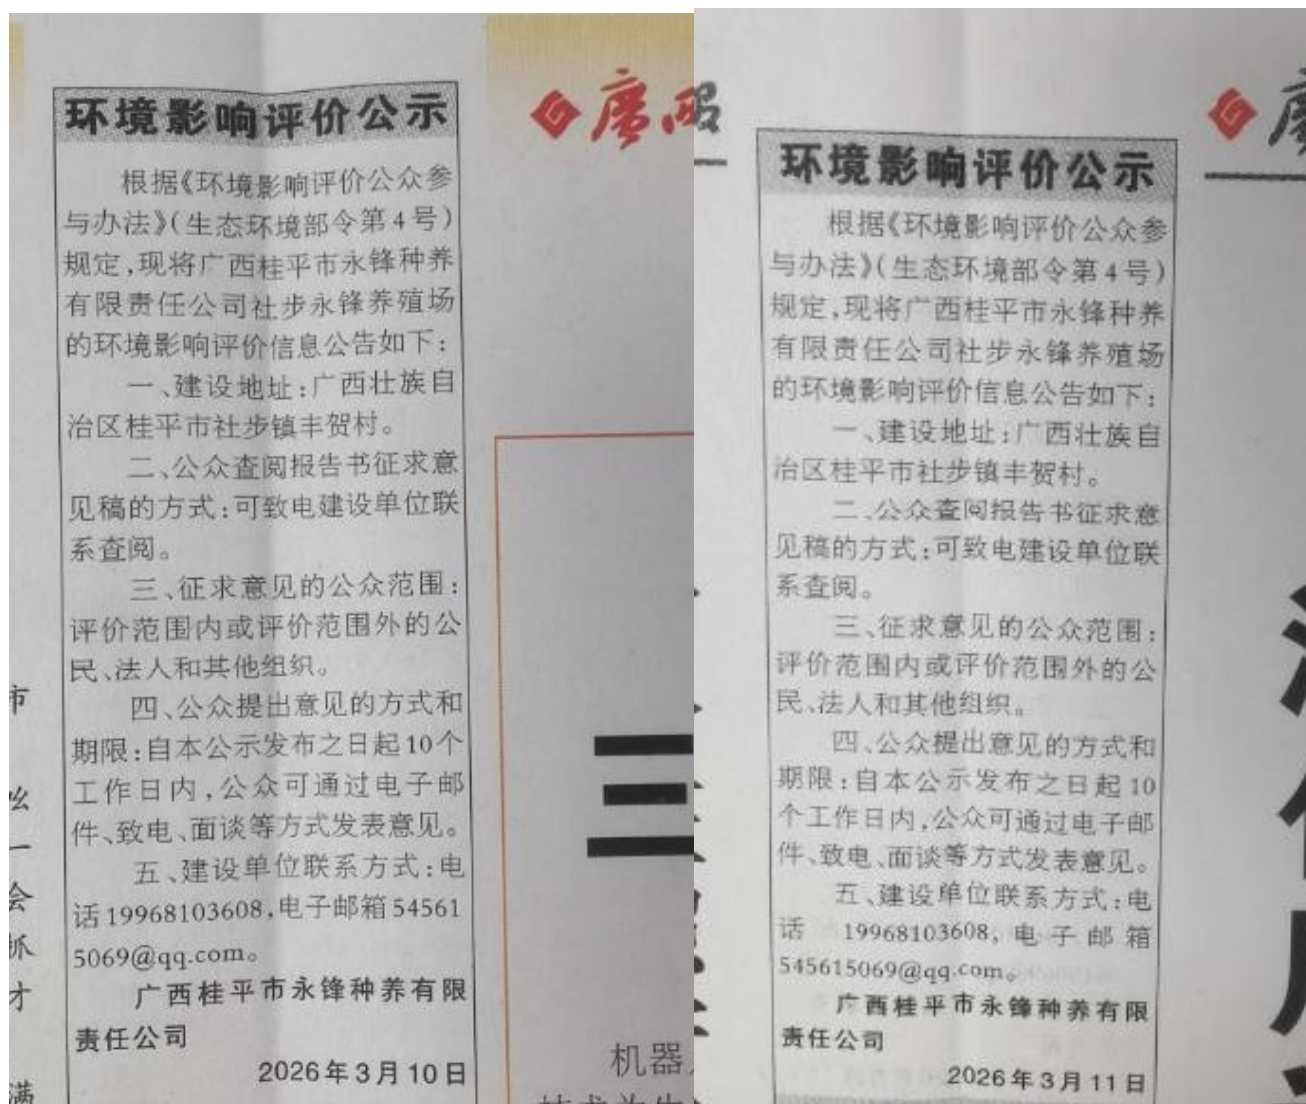 环境影响评价公示
根据《环境影响评价公众参
与办法》(生态环境部令第4号)
规定,现将广西桂平市永锋种养
有限责任公司社步永锋养殖场
的环境影响评价信息公告如下:
一、建设地址:广西壮族自
治区桂平市社步镇丰贺村。
二、公众查阅报告书征求意
见稿的方式:可致电建设单位联
系查阅。
三、征求意见的公众范围:
评价范围内或评价范围外的公
民、法人和其他组织。
四、公众提出意见的方式和
期限:自本公示发布之日起10个
工作日内,公众可通过电子邮
件、致电、面谈等方式发表意见。
五、建设单位联系方式:电
话19968103608,电子邮箱54561
5069@qq.com。
广西桂平市永锋种养有限
责任公司
2026年3月10日
市
会
抓
才
满
廣
三
机器
环境影响评价公示
根据《环境影响评价公众参
与办法》(生态环境部令第4号)
规定,现将广西桂平市永锋种养
有限责任公司社步永锋养殖场
的环境影响评价信息公告如下:
一、建设地址:广西壮族自
治区桂平市社步镇丰贺村。
二、公众查阅报告书征求意
见稿的方式:可致电建设单位联
系查阅。
三、征求意见的公众范围:
评价范围内或评价范围外的公
民、法人和其他组织。
四、公众提出意见的方式和
期限:自本公示发布之日起10
个工作日内,公众可通过电子邮
件、致电、面谈等方式发表意见。
五、建设单位联系方式:电
话 19968103608,电子邮箱
545615069@qq.com。
广西桂平市永锋种养有限
责任公司
2026年3月11日